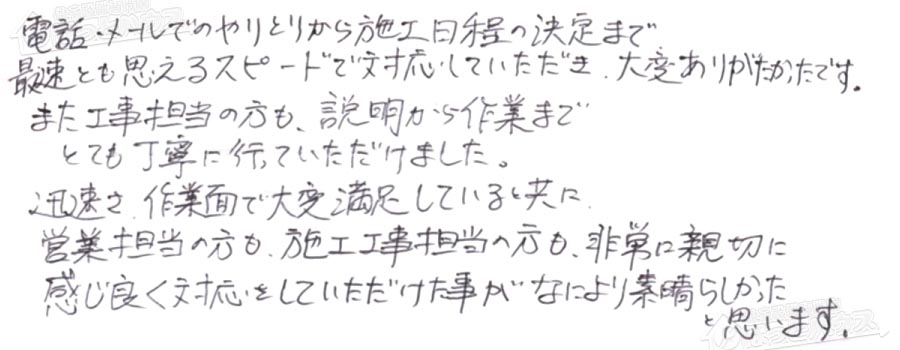 電話・メールでのやりとりから施工日程の決定まで
最速とも思えるスピードで対応していただき、大変ありがたかったです。
また工事担当の方も、説明から作業まで
とても丁寧に行っていただけました。
迅速さ、作業面で大変満足していると共に、
営業担当の方も、施工工事担当の方も、非常に親切に
感じ良く対応をしていただけた事がなにより素晴らしかった
と思います。